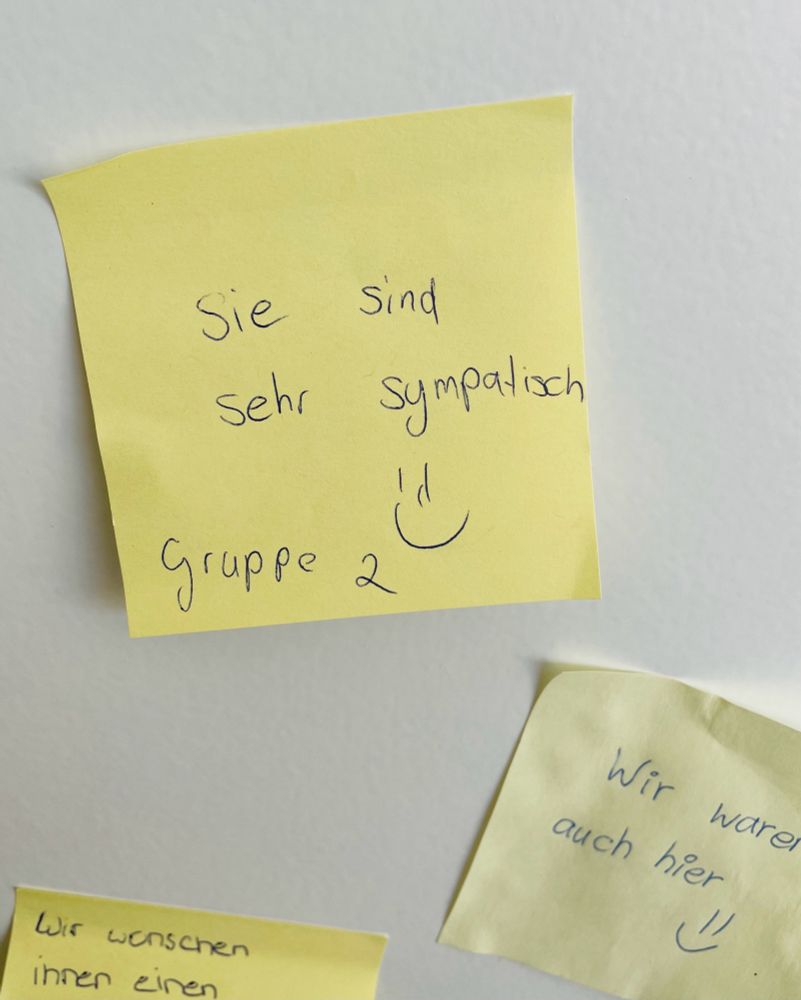 Sie sind
sehr sympatisch
Gruppe 2
Wir waren
auch hier
Wir wünschen
ihnen einen